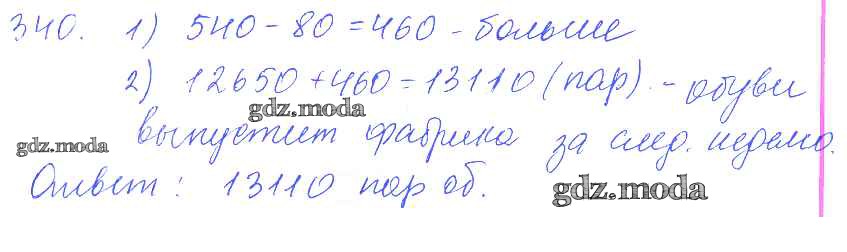 340. 1) 540 - 80 = 460 - больше
2) 12650 + 460 = 13110 (пар) - обуви
gdz.moda
выпустит фабрика за след. неделю.
gdz.moda
Ответ: 13110 пар об.
gdz.moda